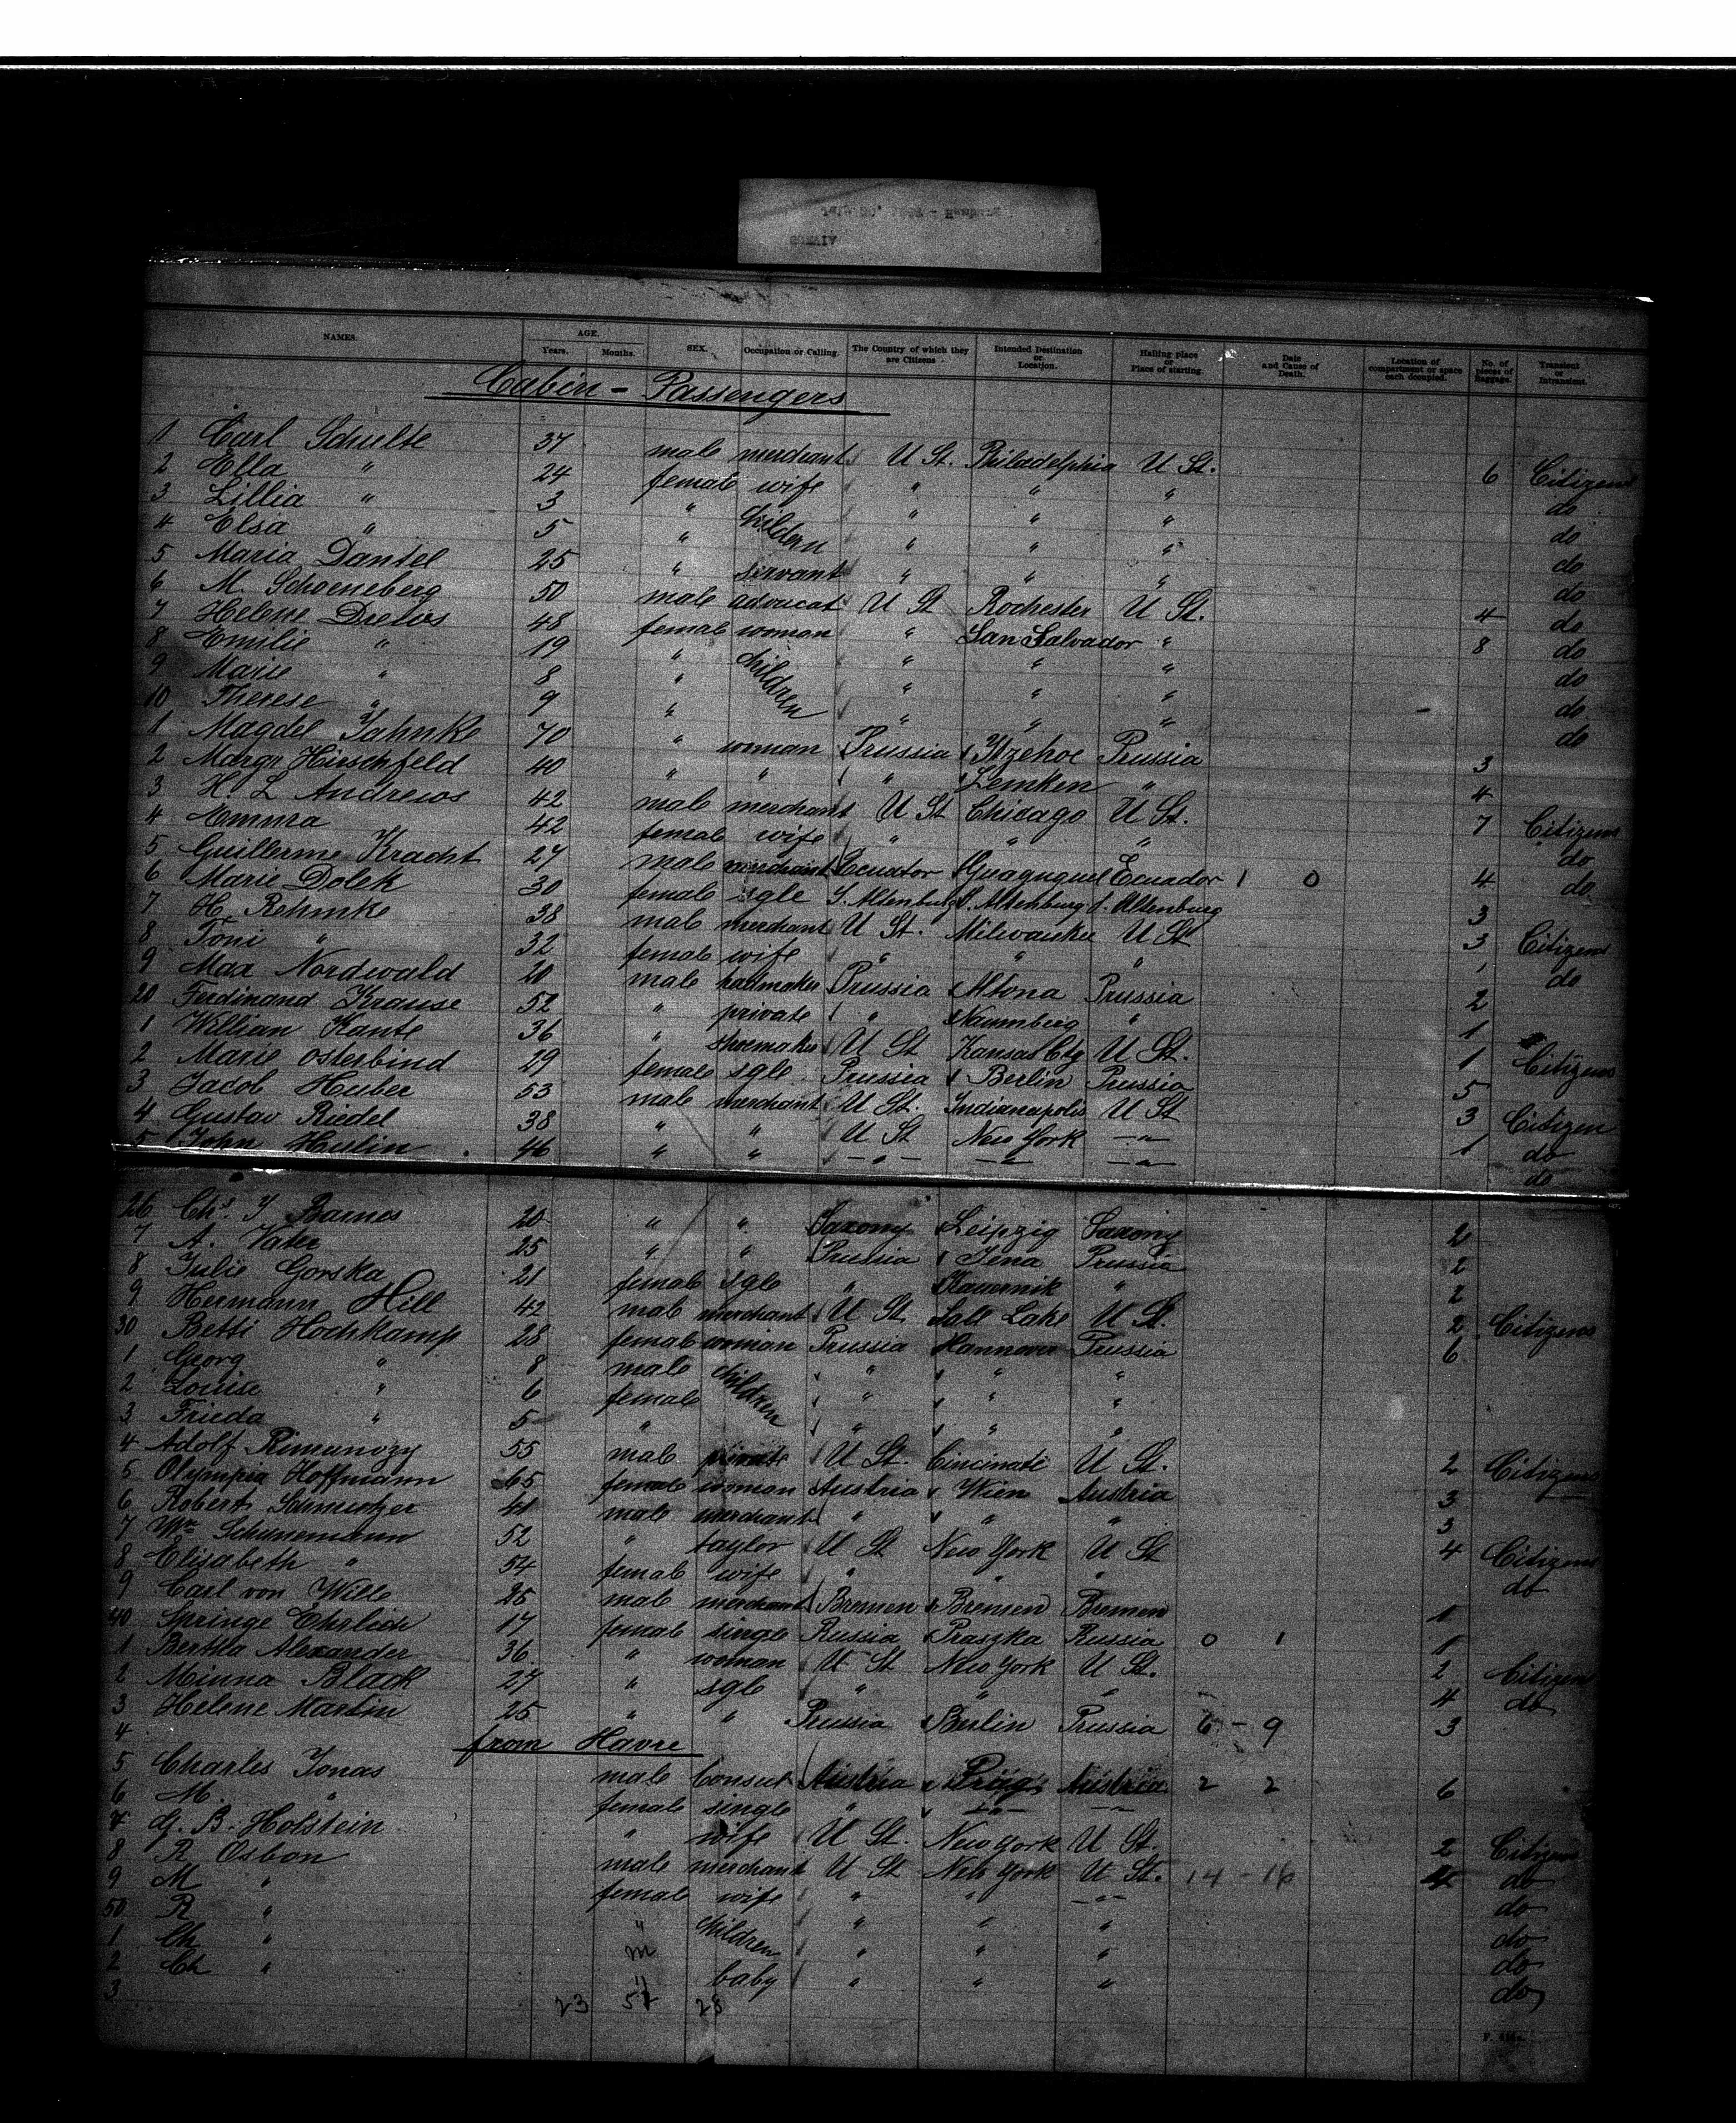 NAMES. AGE. Years. Months. SEX. Occupation or Calling. The Country of which they are Citizens Intended Destination or Location. Hailing place or Place of starting. Date and Cause of Death. Location of compartment or space each occupied. No. of pieces of Baggage. Transient or Intransient.
Cabin - Passengers
1 Carl Schulte 37 male merchant U St. Philadelphia U St. 6 Citizens
2 Ella " 24 female wife " " " do
3 Lillia " 3 " children " " " do
4 Elsa " 5 " " " " do
5 Maria Dantel 25 " servant " " " do
6 M. Schoeneberg 50 male advocat U St Rochester U St. 4 do
7 Helene Drews 48 female woman " San Salvador " 8 do
8 Emilie " 19 " children " " " do
9 Marie " 8 " " " " do
10 Therese " 9 " " " " do
1 Magdel Jahnke 70 " woman Prussia Itzehoe Prussia 3
2 Margr Hirschfeld 40 " " " Lemken " 4
3 H. L Andrews 42 male merchant U St Chicago U St. 7 Citizens
4 Emma 42 female wife " " " do
5 Guillermo Kracht 27 male merchant Ecuator Guayaquel Ecuador 1 0 4 do
6 Marie Dolek 30 female sgle S. Altenburg S. Altenburg S. Altenburg 3
7 H. Rehmke 38 male merchant U St. Milwaukee U St 3 Citizens
8 Toni " 32 female wife " " " 1 do
9 Max Nordwald 20 male hatmaker Prussia Altona Prussia 2
20 Ferdinand Krause 52 " private " Naumberg " 1
1 Willian Kante 36 " shoemaker U St Kansas Cty U St. 1 Citizens
2 Marie Osterbind 29 female sgle Prussia Berlin Prussia 5
3 Jacob Huber 53 male merchant U St. Indianapolis U St 3 Citizen
4 Gustav Riedel 38 " " U St New York —"— 1 do
5 John Hulin 46 " " —"— —"— —"— do
26 Chs. J Barnes 20 " " Saxony Leipzig Saxony 2
7 A. Vater 25 " " Prussia Jena Prussia 2
8 Julie Gorska 21 female sgle " Kauernik " 2
9 Hermann Hill 42 male merchant U St. Salt Lake U St. 2 Citizens
30 Betti Hochkamp 28 female woman Prussia Hannover Prussia 6
1 Georg " 8 male children " " "
2 Louise " 6 female " " "
3 Frieda " 5 " " " "
4 Adolf Rimanoczy 55 male private U St. Cincinati U St. 2 Citizens
5 Olympia Hoffmann 65 female woman Austria Wien Austria 3
6 Robert Schmutzer 41 male merchant " " " 3
7 Wm Schunemann 52 " taylor U St New York U St 4 Citizens
8 Elisabeth " 54 female wife " " " do
9 Carl von Wille 25 male merchant Bremen Bremen Bremen 1
40 Springe Ehrlich 17 female single Russia Praszka Russia 0 1 1
1 Bertha Alexander 36 " woman U St New York U St. 2 Citizen
2 Minna Black 27 " sgle " " " 4 do
3 Helene Martin 25 " " Prussia Berlin Prussia 6 - 9 3
4 from Havre
5 Charles Jonas male Consul Austria Prag Austria 2 2 6
6 M. " female single " —"— —"—
7 G. B. Holstein " wife U St. New York U St. 2 Citizens
8 R Osbon male merchant U St New York U St. 14 - 16 4 do
9 M " female wife " " —"— do
50 R " " children " " " do
1 Ch " m " " " do
2 Ch " " baby " " " do
3 23 52 28